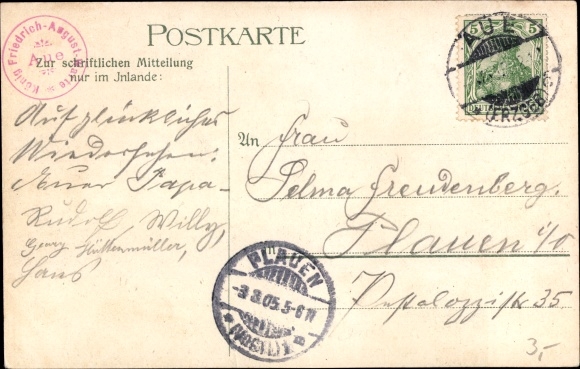 König Friedrich-August-Warte
Aue
POSTKARTE
Zur schriftlichen Mitteilung
nur im Jnlande:
5 5
AUE
(ERZGEBIRGE)
Auf glückliches
Wiedersehen!
Euer Papa-
Rudolf Willy,
Georg Hüttenmüller,
Hans
An Frau
Selma Freudenberg.
in Plauen i/V
Pestalozzistr 35
PLAUEN
-3.3.05.5-6N
(VOGTL.) 1
3,-